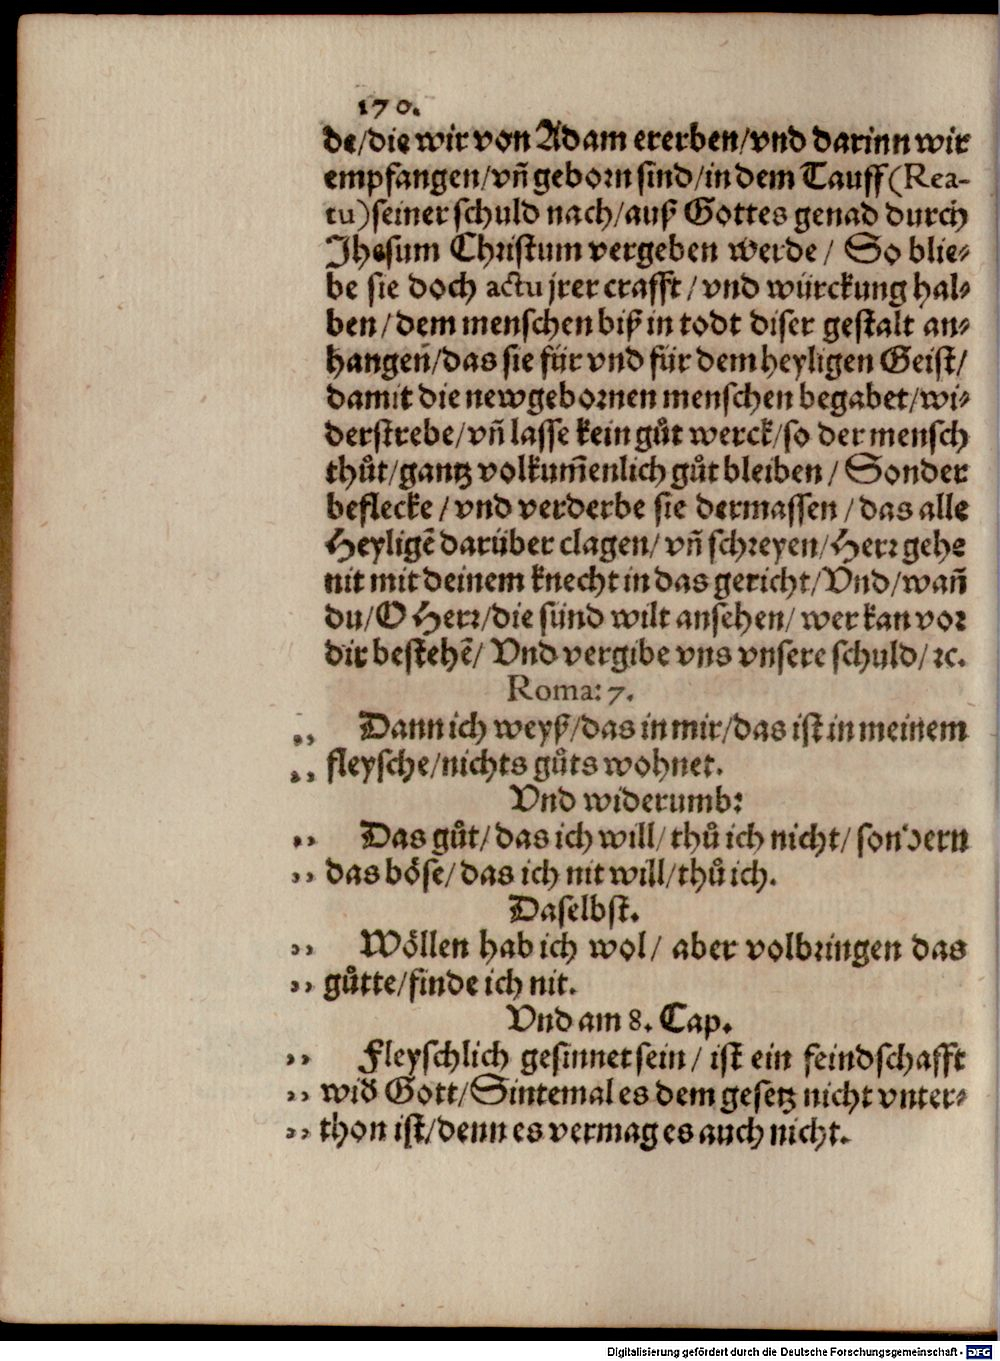 170.
de/die wir von Adam ererben/vnd darinn wir
empfangen/vñ geborn sind/in dem Tauff (Rea-
tu) seiner schuld nach/auß Gottes genad durch
Jhesum Christum vergeben werde/ So blie-
be sie doch actu jrer crafft/vnd würckung hal-
ben/dem menschen biß in todt diser gestalt an-
hangen/das sie für vnd für dem heyligen Geist/
damit die newgebornen menschen begabet/wi-
derstrebe/vñ lasse kein gůt werck/so der mensch
thůt/gantz volkum̃enlich gůt bleiben/ Sonder
beflecke/vnd verderbe sie dermassen/das alle
Heyligẽ darüber clagen/vñ schreyen/Herr gehe
nit mit deinem knecht in das gericht/Vnd/wañ
du/O Herr/die sünd wilt ansehen/wer kan vor
dir bestehẽ/ Vnd vergibe vns vnsere schuld/ꝛc.
Roma: 7.
„ Dann ich weyß/das in mir/das ist in meinem
„ fleysche/nichts gůts wohnet.
Vnd widerumb:
„ Das gůt/das ich will/thů ich nicht/sondern
„ das böse/das ich nit will/thů ich.
Daselbst.
„ Wöllen hab ich wol/ aber volbringen das
„ gůtte/finde ich nit.
Vnd am 8. Cap.
„ Fleyschlich gesinnet sein/ ist ein feindschafft
„ wid̕ Gott/Sintemal es dem gesetz nicht vnter-
„ thon ist/denn es vermag es auch nicht.
Digitalisierung gefördert durch die Deutsche Forschungsgemeinschaft - DFG